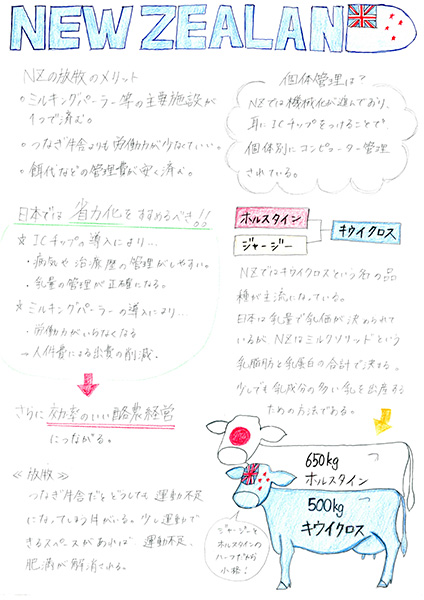 NEW ZEALAND
NZの放牧のメリット
○ミルキングパーラー等の主要施設が
1つで済む。
○つなぎ牛舎よりも労働力が少なくていい。
○餌代などの管理費が安く済む。
個体管理は?
NZでは機械化が進んでおり、
耳にICチップをつけることで、
個体別にコンピューター管理
されている。
日本では省力化をすすめるべき!!
☆ICチップの導入により…
・病気や治療歴の管理がしやすい。
・乳量の管理が正確になる。
☆ミルキングパーラーの導入により…
・労働力がいらなくなる
→人件費による出費の削減。
さらに効率のいい酪農経営
につながる。
≪放牧≫
つなぎ牛舎だとどうしても運動不足
になってしまう牛がいる。少し運動で
きるスペースがあれば運動不足、
肥満が解消される。
ホルスタイン
ジャージー
キウイクロス
NZではキウイクロスという名の品
種が主流になっている。
日本は乳量で乳価が決められて
いるが、NZはミルクソリッドという
乳脂肪と乳蛋白の合計で決まる。
少しでも乳成分の多い乳を出産する
ための方法である。
650kg
ホルスタイン
500kg
キウイクロス
ジャージーと
ホルスタインの
ハーフだから
小格!